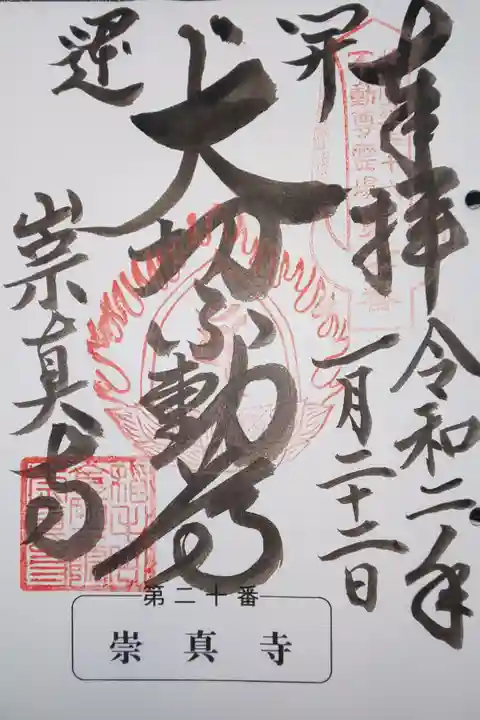 奉拝
令和二年
一月二十二日
開
運
大切不動尊
崇真寺
第二十番
崇真寺